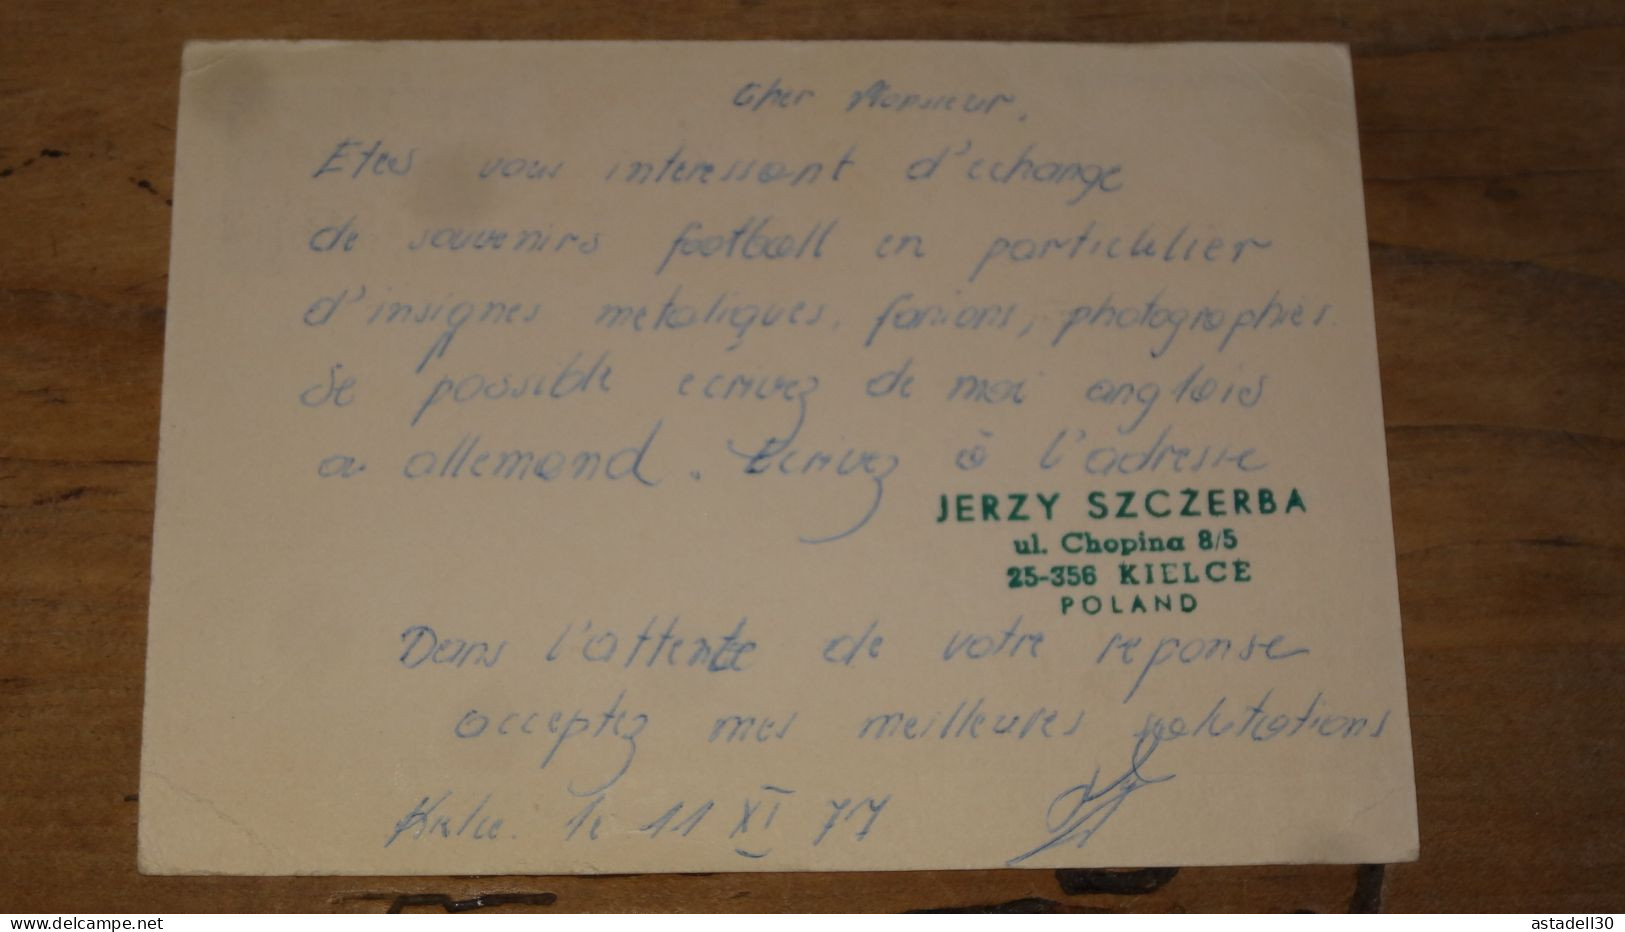 Cher Monsieur,
Etes vous interessant d'echange
de souvenirs football en particulier
d'insignes metaliques, fanions, photographies.
Se possible ecrivez de moi anglais
a allemand. Ecrivez à l'adresse
JERZY SZCZERBA
ul. Chopina 8/5
25-356 KIELCE
POLAND
Dans l'attente de votre reponse
acceptez mes meilleures salutations
Kielce. le 11 XI 77
www.delcampe.net
astadell30